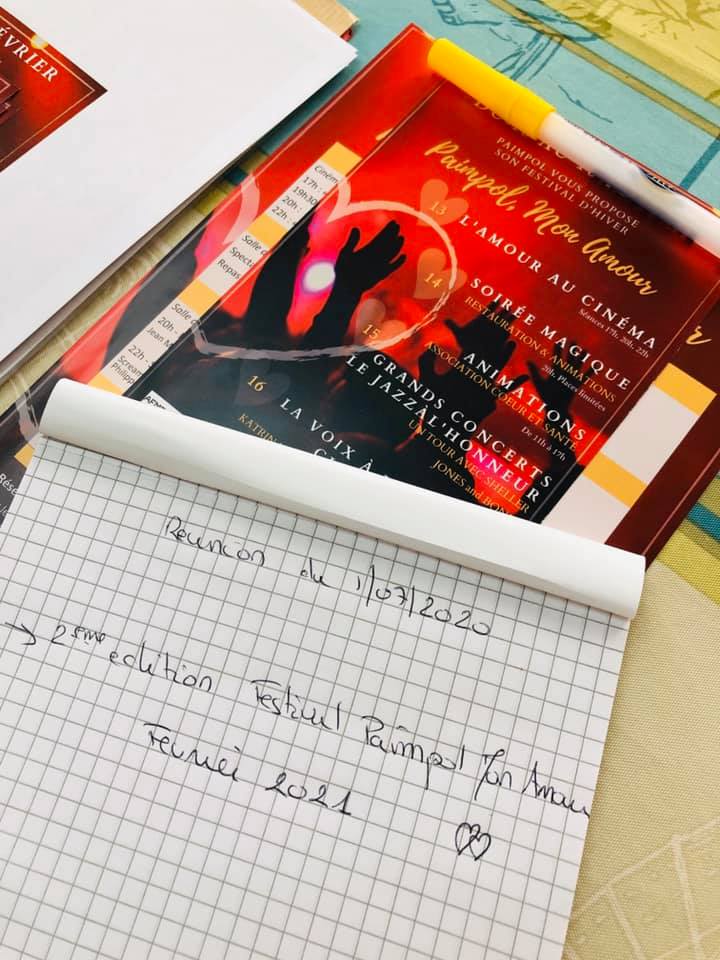 ÉVRIER
PAIMPOL VOUS PROPOSE
SON FESTIVAL D'HIVER
Paimpol, Mon Amour
13 L'AMOUR AU CINÉMA
Séances 17h, 20h, 22h
14 SOIRÉE MAGIQUE
RESTAURATION & ANIMATIONS
20h, Places limitées
15 ANIMATIONS
ASSOCIATION COEUR ET SANTÉ
De 11h à 17h
GRANDS CONCERTS
LE JAZZ À L'HONNEUR
UN TOUR AVEC SHELLER
JONES and
16 LA VOIX À
KATRIN
Ciném
17h :
19h30
20h :
22h :
Salle d
Specta
Repas
Salle d
20h -
Jean M
22h - S
Scream
Philipp
Rése
Reunion du 1/07/2020
→ 2eme edition Festival Paimpol Mon Amour
Fevrier 2021